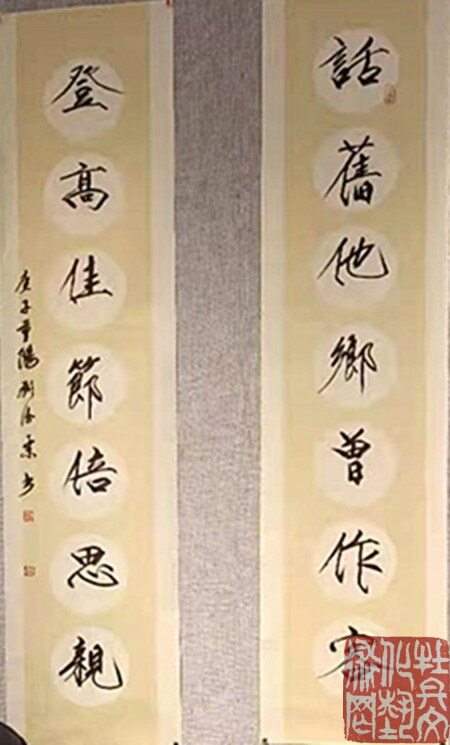 話舊他鄉曾作客
登高佳節倍思親
庚子重陽
書